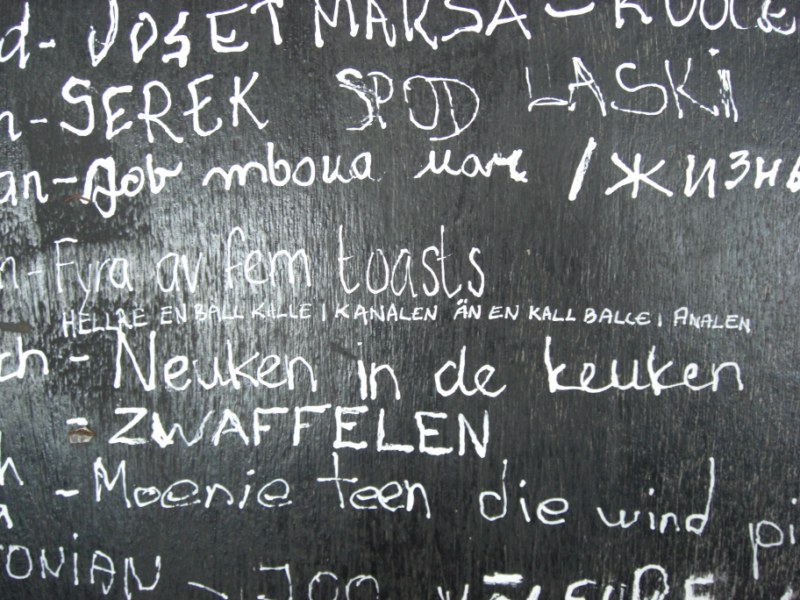 d- JOSET MAKSA -
n- SEREK SPOD LASKI
an- Јов твоиа /ЖИЗНЬ
n- Fyra av fem toasts
HELLRE EN BALL KILLE I KANALEN ÄN EN KALL BALLE I ANALEN
ch - Neuken in de keuken
= ZWAFFELEN
- Moenie teen die wind pi
ONIAN -